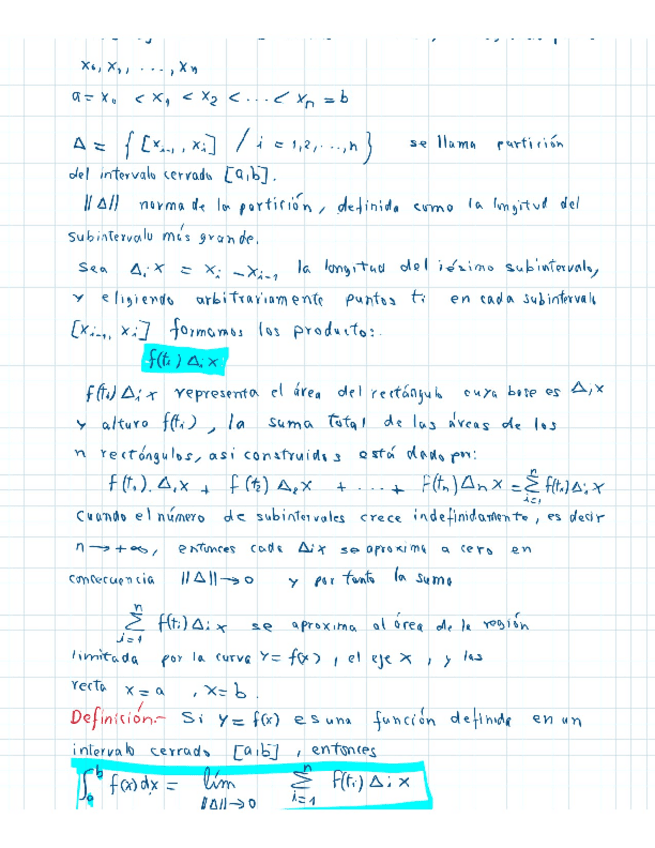 x₀, x₁, ..., xₙ
a = x₀ < x₁ < x₂ < ... < xₙ = b
Δ = { [xᵢ₋₁, xᵢ] / i = 1,2,...,n } se llama partición
del intervalo cerrado [a,b].
||Δ|| norma de la partición, definida como la longitud del
subintervalo más grande.
Sea Δᵢx = xᵢ - xᵢ₋₁ la longitud del iésimo subintervalo,
y eligiendo arbitrariamente puntos tᵢ en cada subintervalo
[xᵢ₋₁, xᵢ] formamos los producto:
f(tᵢ) Δᵢx
f(tᵢ) Δᵢx representa el área del rectángulo cuya base es Δᵢx
y altura f(tᵢ), la suma total de las áreas de los
n rectángulos, asi construidos está dado por:
f(t₁).Δ₁x + f(t₂) Δ₂x + ... + f(tₙ)Δₙx = ∑ⁿᵢ₌₁ f(tᵢ)Δᵢx
Cuando el número de subintervalos crece indefinidamente, es decir
n → +∞, entonces cada Δᵢx se aproxima a cero en
concecuencia ||Δ|| → 0 y por tanto la suma
∑ⁿᵢ₌₁ f(tᵢ)Δᵢx se aproxima al área de la región
limitada por la curva y = f(x), el eje x, y las
recta x = a , x = b.
Definición.- Si y = f(x) es una función definida en un
intervalo cerrado [a,b], entonces
∫ₐᵇ f(x)dx = lím ||Δ||→0 ∑ⁿᵢ₌₁ f(tᵢ) Δᵢx